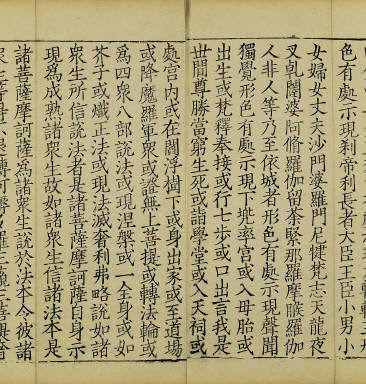 色有處示現刹帝利長者大臣王臣小男小
女婦女丈夫沙門婆羅門尼犍梵志天龍夜
叉乹闥婆阿脩羅伽留荼緊那羅摩睺羅伽
人非人等乃至依城者形色有處示現聲聞
獨覺形色有處示現下兠率宮或入母胎或
出生或梵釋奉接或行七步或口出言我是
世間尊勝當窮生死或詣學堂或入天祠或
處宮内或在閻浮樹下或身出家或至道場
或降魔羅軍衆或證無上菩提或轉法輪或
為四衆八部說法或現涅槃或一全身或如
芥子或熾正法或現法滅奢利弗略說如諸
衆生所信說法者是諸菩薩摩訶薩自身示
現為成熟諸衆生故如諸衆生信諸法本是
諸菩薩摩訶薩為諸衆生說於法本令彼諸